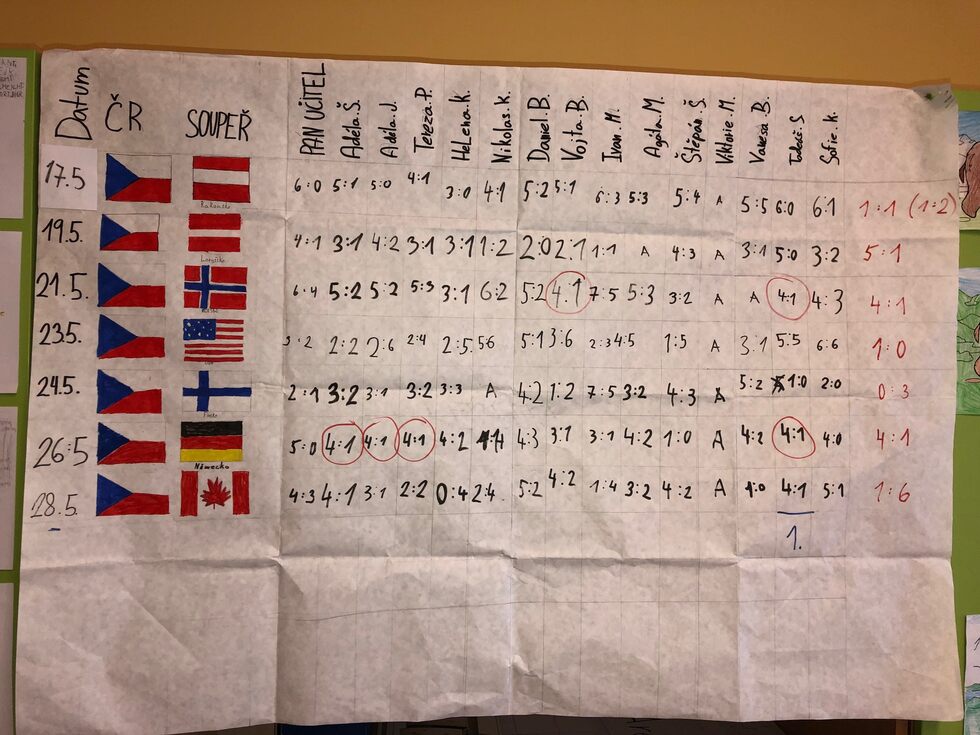 Datum ČR SOUPEŘ PAN UČITEL Adéla.Š. Adéla.J. Tereza.P. HeLena.K. Nikolas.K. Daniel.B. Vojta.B. Ivan.M. Agáta.M. Štěpán.Š. Viktorie.M. Vanesa.B. Sofie.K.
17.5 6:0 5:1 5:0 4:1 3:0 4:1 5:2 5:1 6:3 5:3 5:4 A 5:5 6:0 6:1 1:1 (1:2)
Rakousko
19.5. 4:1 3:1 4:2 3:1 3:1 1:2 2:0 2:1 1:1 A 4:3 A 3:1 5:0 3:2 5:1
Lotyšsko
21.5. 6:4 5:2 5:2 5:3 3:1 6:2 5:2 4:1 7:5 5:3 3:2 A A 4:1 4:3 4:1
23.5. 2:2 2:6 2:4 2:5 5:6 5:1 3:6 2:3 4:5 1:5 A 3:1 5:5 6:6 1:0
24.5. 2:1 3:2 3:1 3:2 3:3 A 4:2 1:2 7:5 3:2 4:3 A 5:2 1:0 2:0 0:3
26.5 5:0 4:1 4:1 4:1 4:2 4:3 3:1 3:1 4:2 1:0 A 4:2 4:1 4:0 4:1
Německo
28.5. 4:3 4:1 3:1 2:2 0:4 2:4. 5:2 4:2 1:4 3:2 4:2 A 1:0 4:1 5:1 1:6
1.